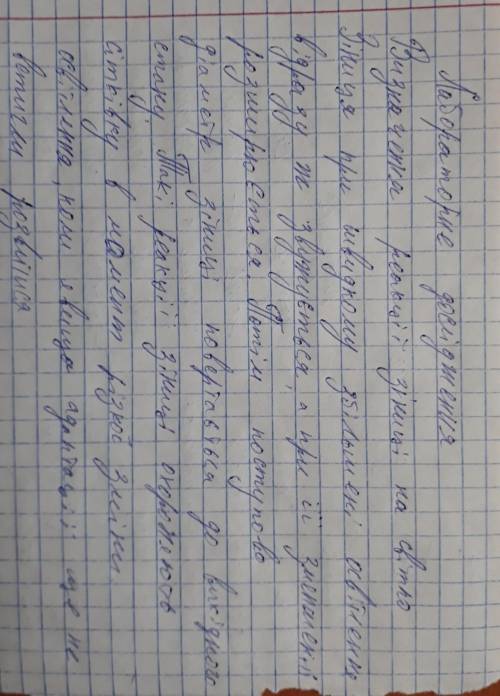 Лабораторне дослідження
Визначення реакції зіниці на світло
Зіниця при швидкому збільшені освітлення
відразу ж звужується, а при її зменшенні
розширюється. Потім поступово
діаметр зіниці повертається до вихідного
стану. Такі реакції зіниці охороняють
сітківку в момент різкої зміни
освітлення, коли явища адаптації ще не
встигли розвитися